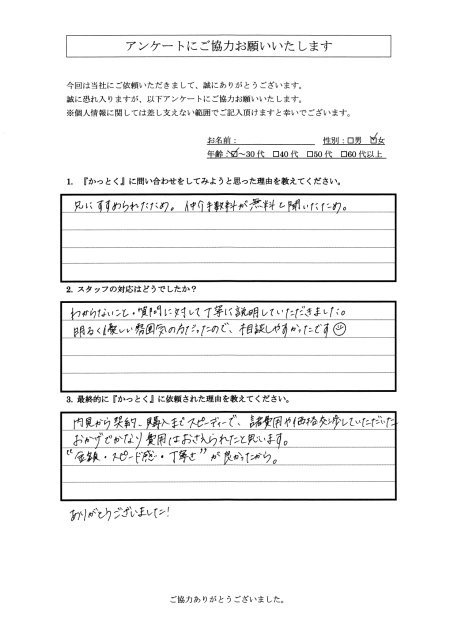 アンケートにご協力お願いいたします
今回は当社にご依頼いただきまして、誠にありがとうございます。
誠に恐れ入りますが、以下アンケートにご協力お願いいたします。
※個人情報に関しては差し支えない範囲でご記入頂けますと幸いでございます。
お名前： 性別：□男 ☑女
年齢：☑～30代 □40代 □50代 □60代以上
1. 『かっとく』に問い合わせをしてみようと思った理由を教えてください。
兄にすすめられたため。仲介手数料が無料と聞いたため。
2. スタッフの対応はどうでしたか？
わからないこと・質問に対して丁寧に説明していただきました。
明るく優しい雰囲気の方だったので、相談しやすかったです☺
3. 最終的に『かっとく』に依頼された理由を教えてください。
内見から契約、購入までスピーディーで、諸費用や価格交渉していただいた
おかげでかなり費用はおさえられたと思います。
"金額・スピード感・丁寧さ"が良かったから。
ありがとうございました!
ご協力ありがとうございました。